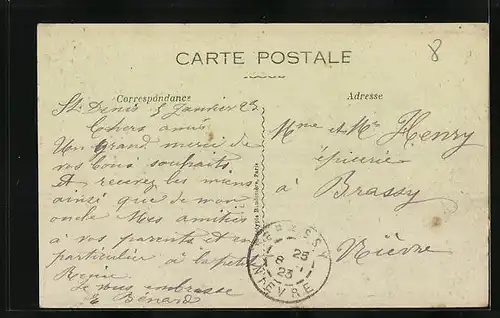 8
CARTE POSTALE
Correspondance
Adresse
St Denis 5 Janvier 23
Chers amis
Un grand merci de
vos bons souhaits
et recevez les miens
ainsi que de mon
oncle Mes amitiés
à vos parents et en
particulier à la petite
Renée
Je vous embrasse
E Bénard
Mme et Mr Henry
épicerie
à Brassy
Nièvre
BRASSY
23
8 - 1
23
NIEVRE